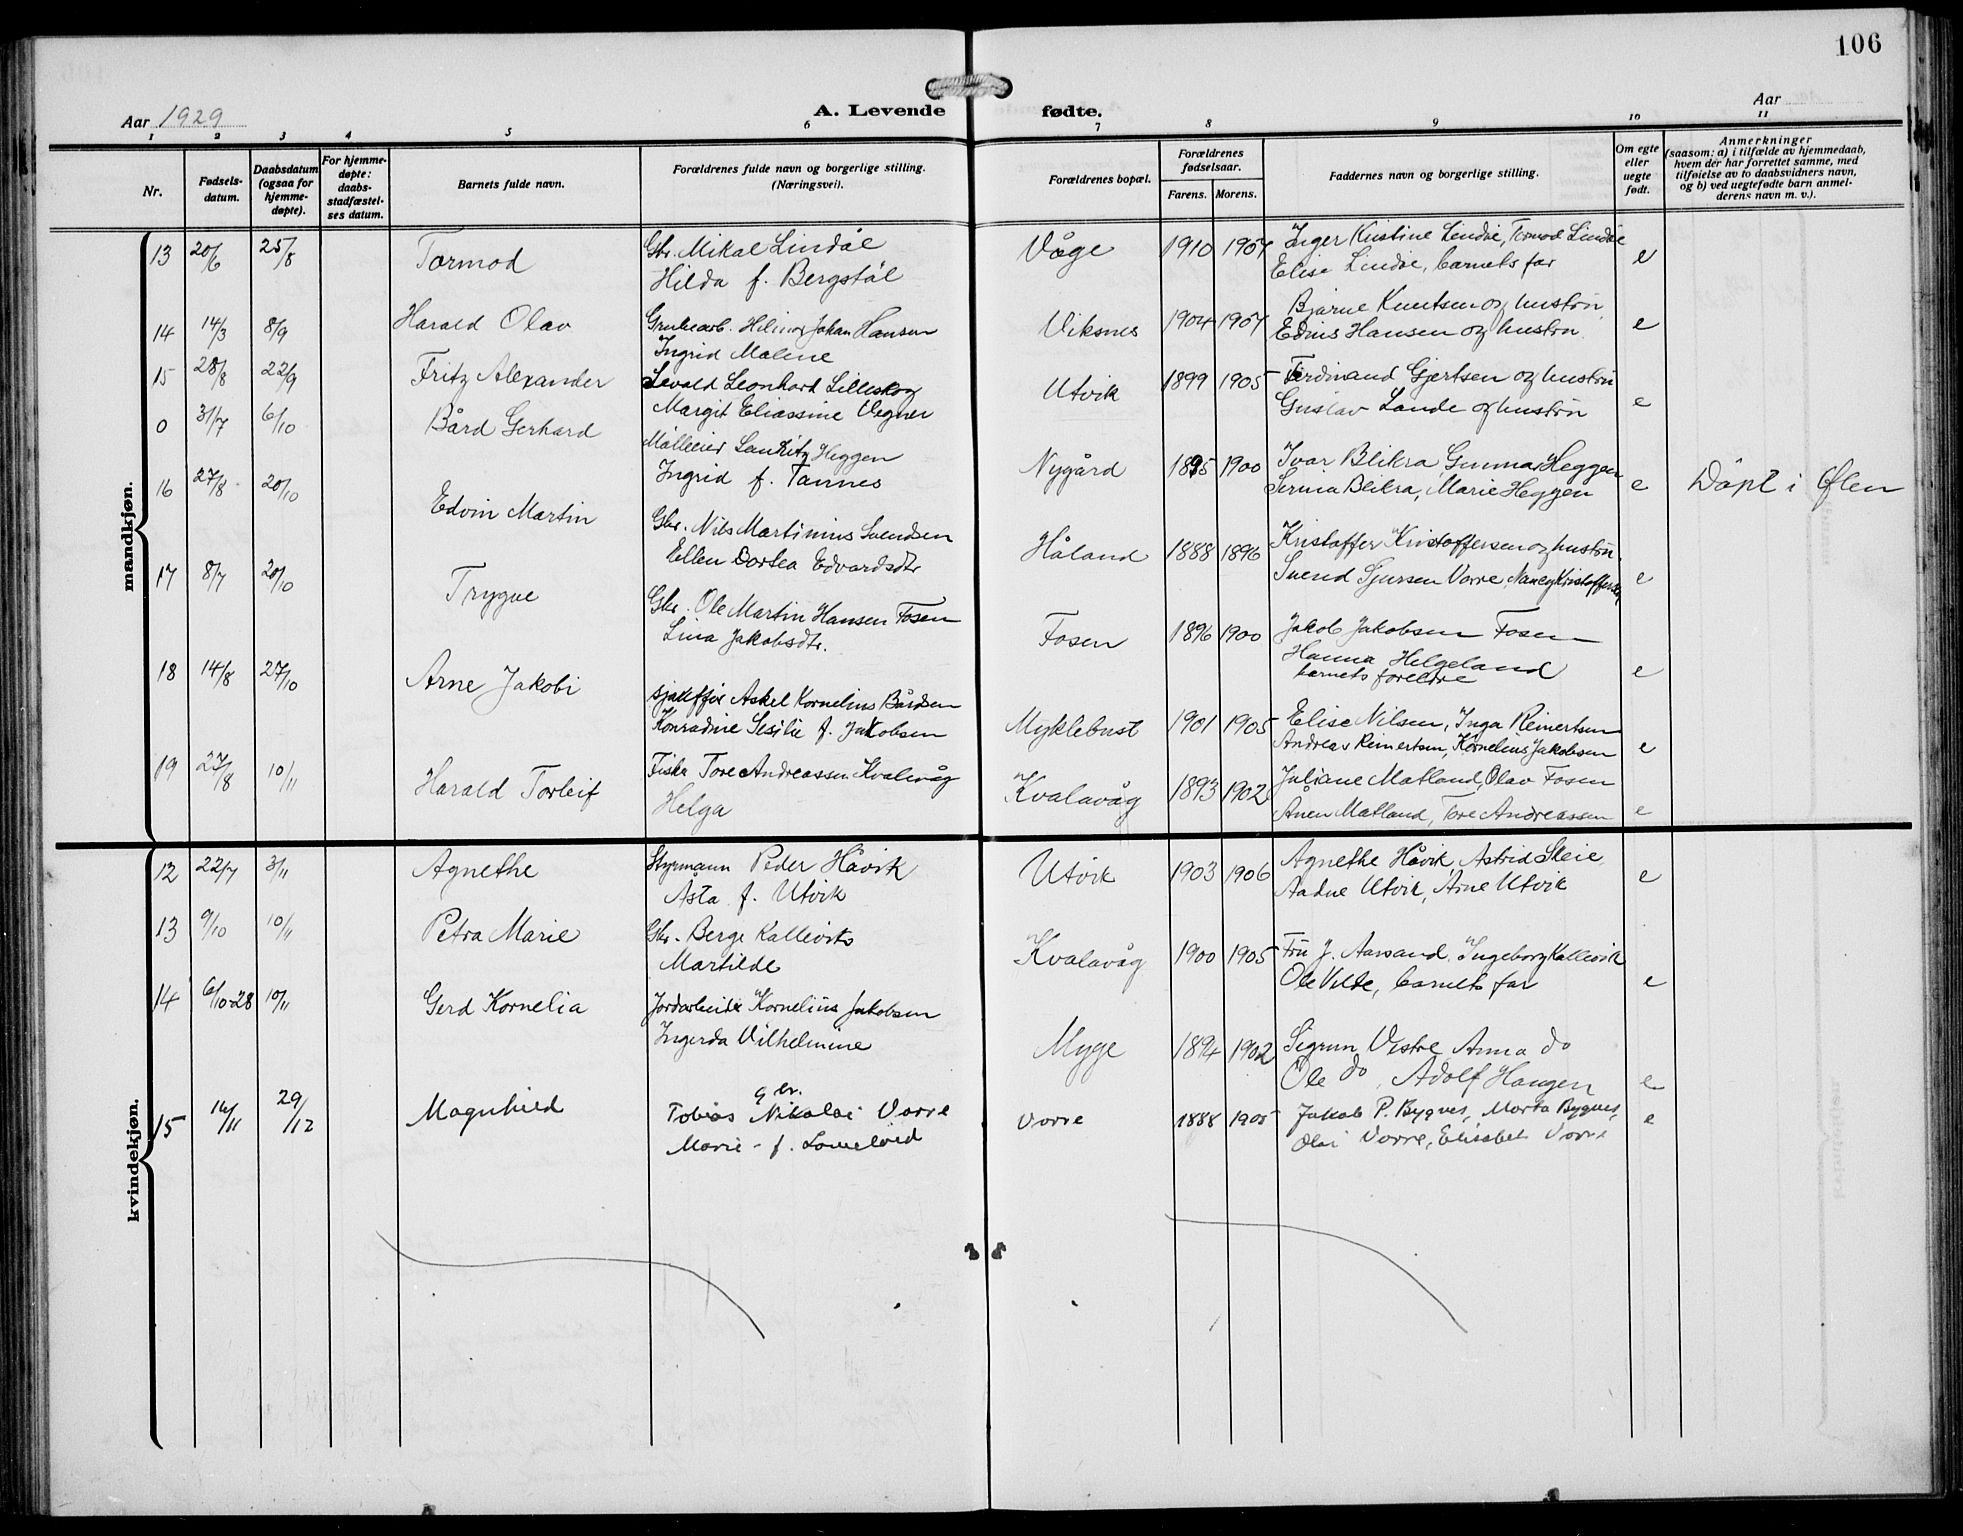 106
Aar 1929
A. Levende fødte.
Aar
1 2 3 4 5 6 7 8 9 10 11
Nr.
Fødsels-
datum.
Daabsdatum
(ogsaa for
hjemme-
døpte).
For hjemme-
døpte:
daabs-
stadfæstel-
ses datum.
Barnets fulde navn.
Forældrenes fulde navn og borgerlige stilling.
(Næringsvei).
Forældrenes bopæl.
Forældrenes
fødselsaar.
Farens. Morens.
Faddernes navn og borgerlige stilling.
Om egte
eller
uegte
født.
Anmerkninger
(saasom: a) i tilfælde av hjemmedaab,
hvem der har forrettet samme, med
tilføielse av to daabsvidners navn,
og b) ved uegtefødte barn anmel-
derens navn m. v.).
mandkjøn.
13 20/6 25/8 Tormod Gbr. Mikal Lindøe Våge 1910 1907 Inger Kristine Lindøe, Tormod Lindøe e
Hilda f. Bergstøl Elise Lindøe, barnets far
14 14/3 8/9 Harald Olav Grubearb. Johan Hansen Viksnes 1904 1907 Bjarne Knutsen og hustru e
Ingrid Malene Hansen og hustru.
15 28/8 22/9 Fritz Alexander Sevald Leonhard Lilleskog Utvik 1899 1905 Ferdinand Gjertsen og hustru e
Margit Eliassine Vegner Gustav Lande og hustru
0 31/7 6/10 Bård Gerhard Lauritz Heggen Nygård 1895 1900 Ivar Blikra, Gunnar Heggen e Döpt i Ølen
Ingrid f. Tannes Serina Blikra, Marie Heggen
16 27/8 20/10 Edvin Martin Gbr. Nils Martinius Svendsen Håland 1888 1896 Kristoffer Kristoffersen og hustru. e
Ellen Dortea Edvardsdtr Svend Sjursen Vorre, Nancy Kristoffersen
17 8/7 20/10 Trygve Gbr. Ole Martin Hansen Fosen Fosen 1896 1900 Jakob Jakobsen Fosen e
Lina Jakobsdtr. Hanna Helgeland
barnets foreldre
18 14/8 27/10 Arne Jakobi sjauffør Askel Kornelius Bårdsen Myklebust 1901 1905 Elise Nilsen, Inga Reinertsen e
Konradine Sesilie f. Jakobsen Andreas Reinertsen, Kornelius Jakobsen
19 27/8 10/11 Harald Torleif Fisker Tore Andreassen Kvalavåg Kvalavåg 1893 1902 Juliane Matland, Olav Fosen e
Helga Ånen Matland, Tore Andreassen
kvindekjøn.
12 22/7 3/11 Agnethe Styrmann Peder Håvik Utvik 1903 1906 Agnethe Håvik, Astrid Skeie e
Åsta f. Utvik Aadne Utvik, Arne Utvik
13 9/10 10/11 Petra Marie Gbr. Berge Kallevik Kvalavåg 1900 1905 Fru J. Aarsand, Ingeborg Kallevik e
Martilde Ole Velde, barnets far
14 6/10-28 10/11 Gerd Kornelia Jordarbeider Kornelius Jakobsen Myge 1894 1902 Sigrun Vestre Anna do e
Ingerda Vilhelmine Ole do, Adolf Haugen
15 14/11 29/12 Magnhild Gbr. Tobias Nikolai Vorre Vorre 1888 1905 Jakob P. Bygnes, Marta Bygnes, e
Marie - f. Olai Vorre, Elisabet Vorre